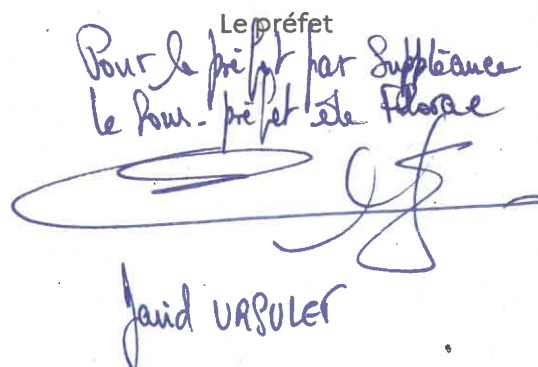 Le préfet
Pour le préfet par Suppléance
Le Sous-préfet de Florac
David URSULET